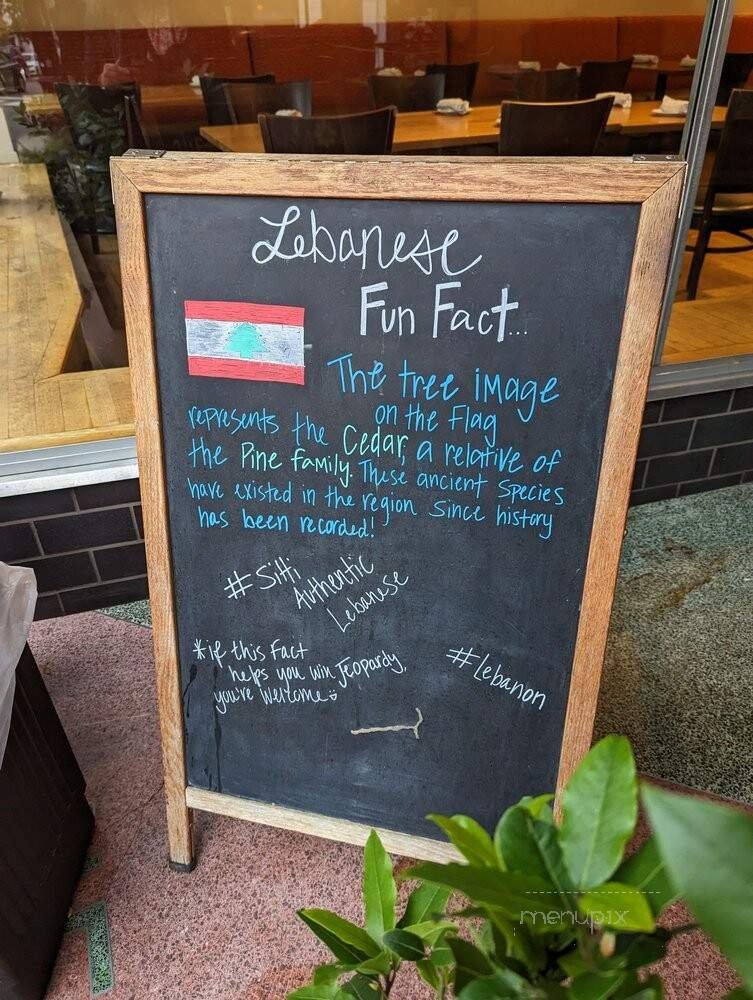 Lebanese
Fun Fact...
The tree image
on the Flag
represents the Cedar, a relative of
the Pine family. These ancient species
have existed in the region since history
has been recorded!
#Sitti
Authentic
Lebanese
*if this Fact
helps you win Jeopardy,
you're welcome
#Lebanon
menupix